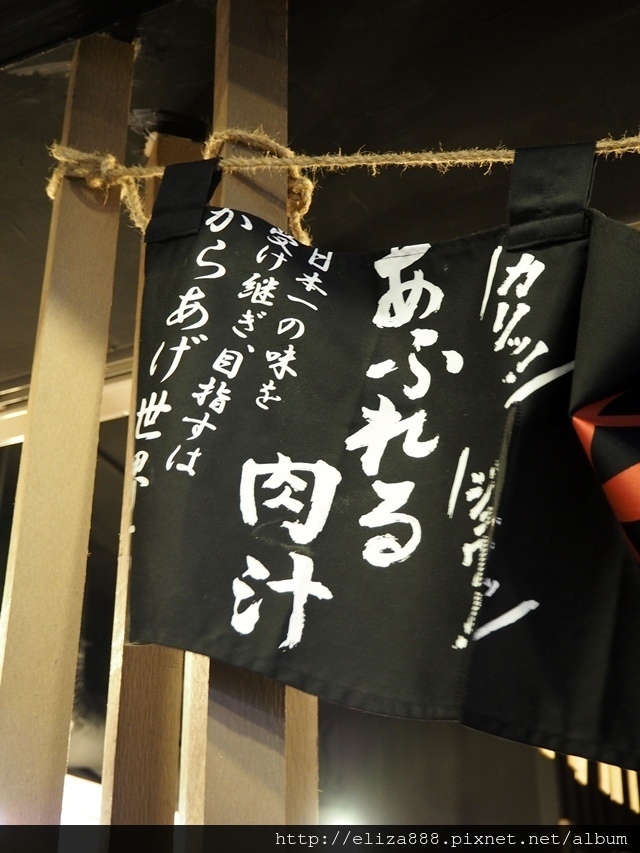 カリッ!
ジュワッ
あふれる
肉汁
日本一の味を
受け継ぎ、目指すは
からあげ世界
http://eliza888.pixnet.net/album